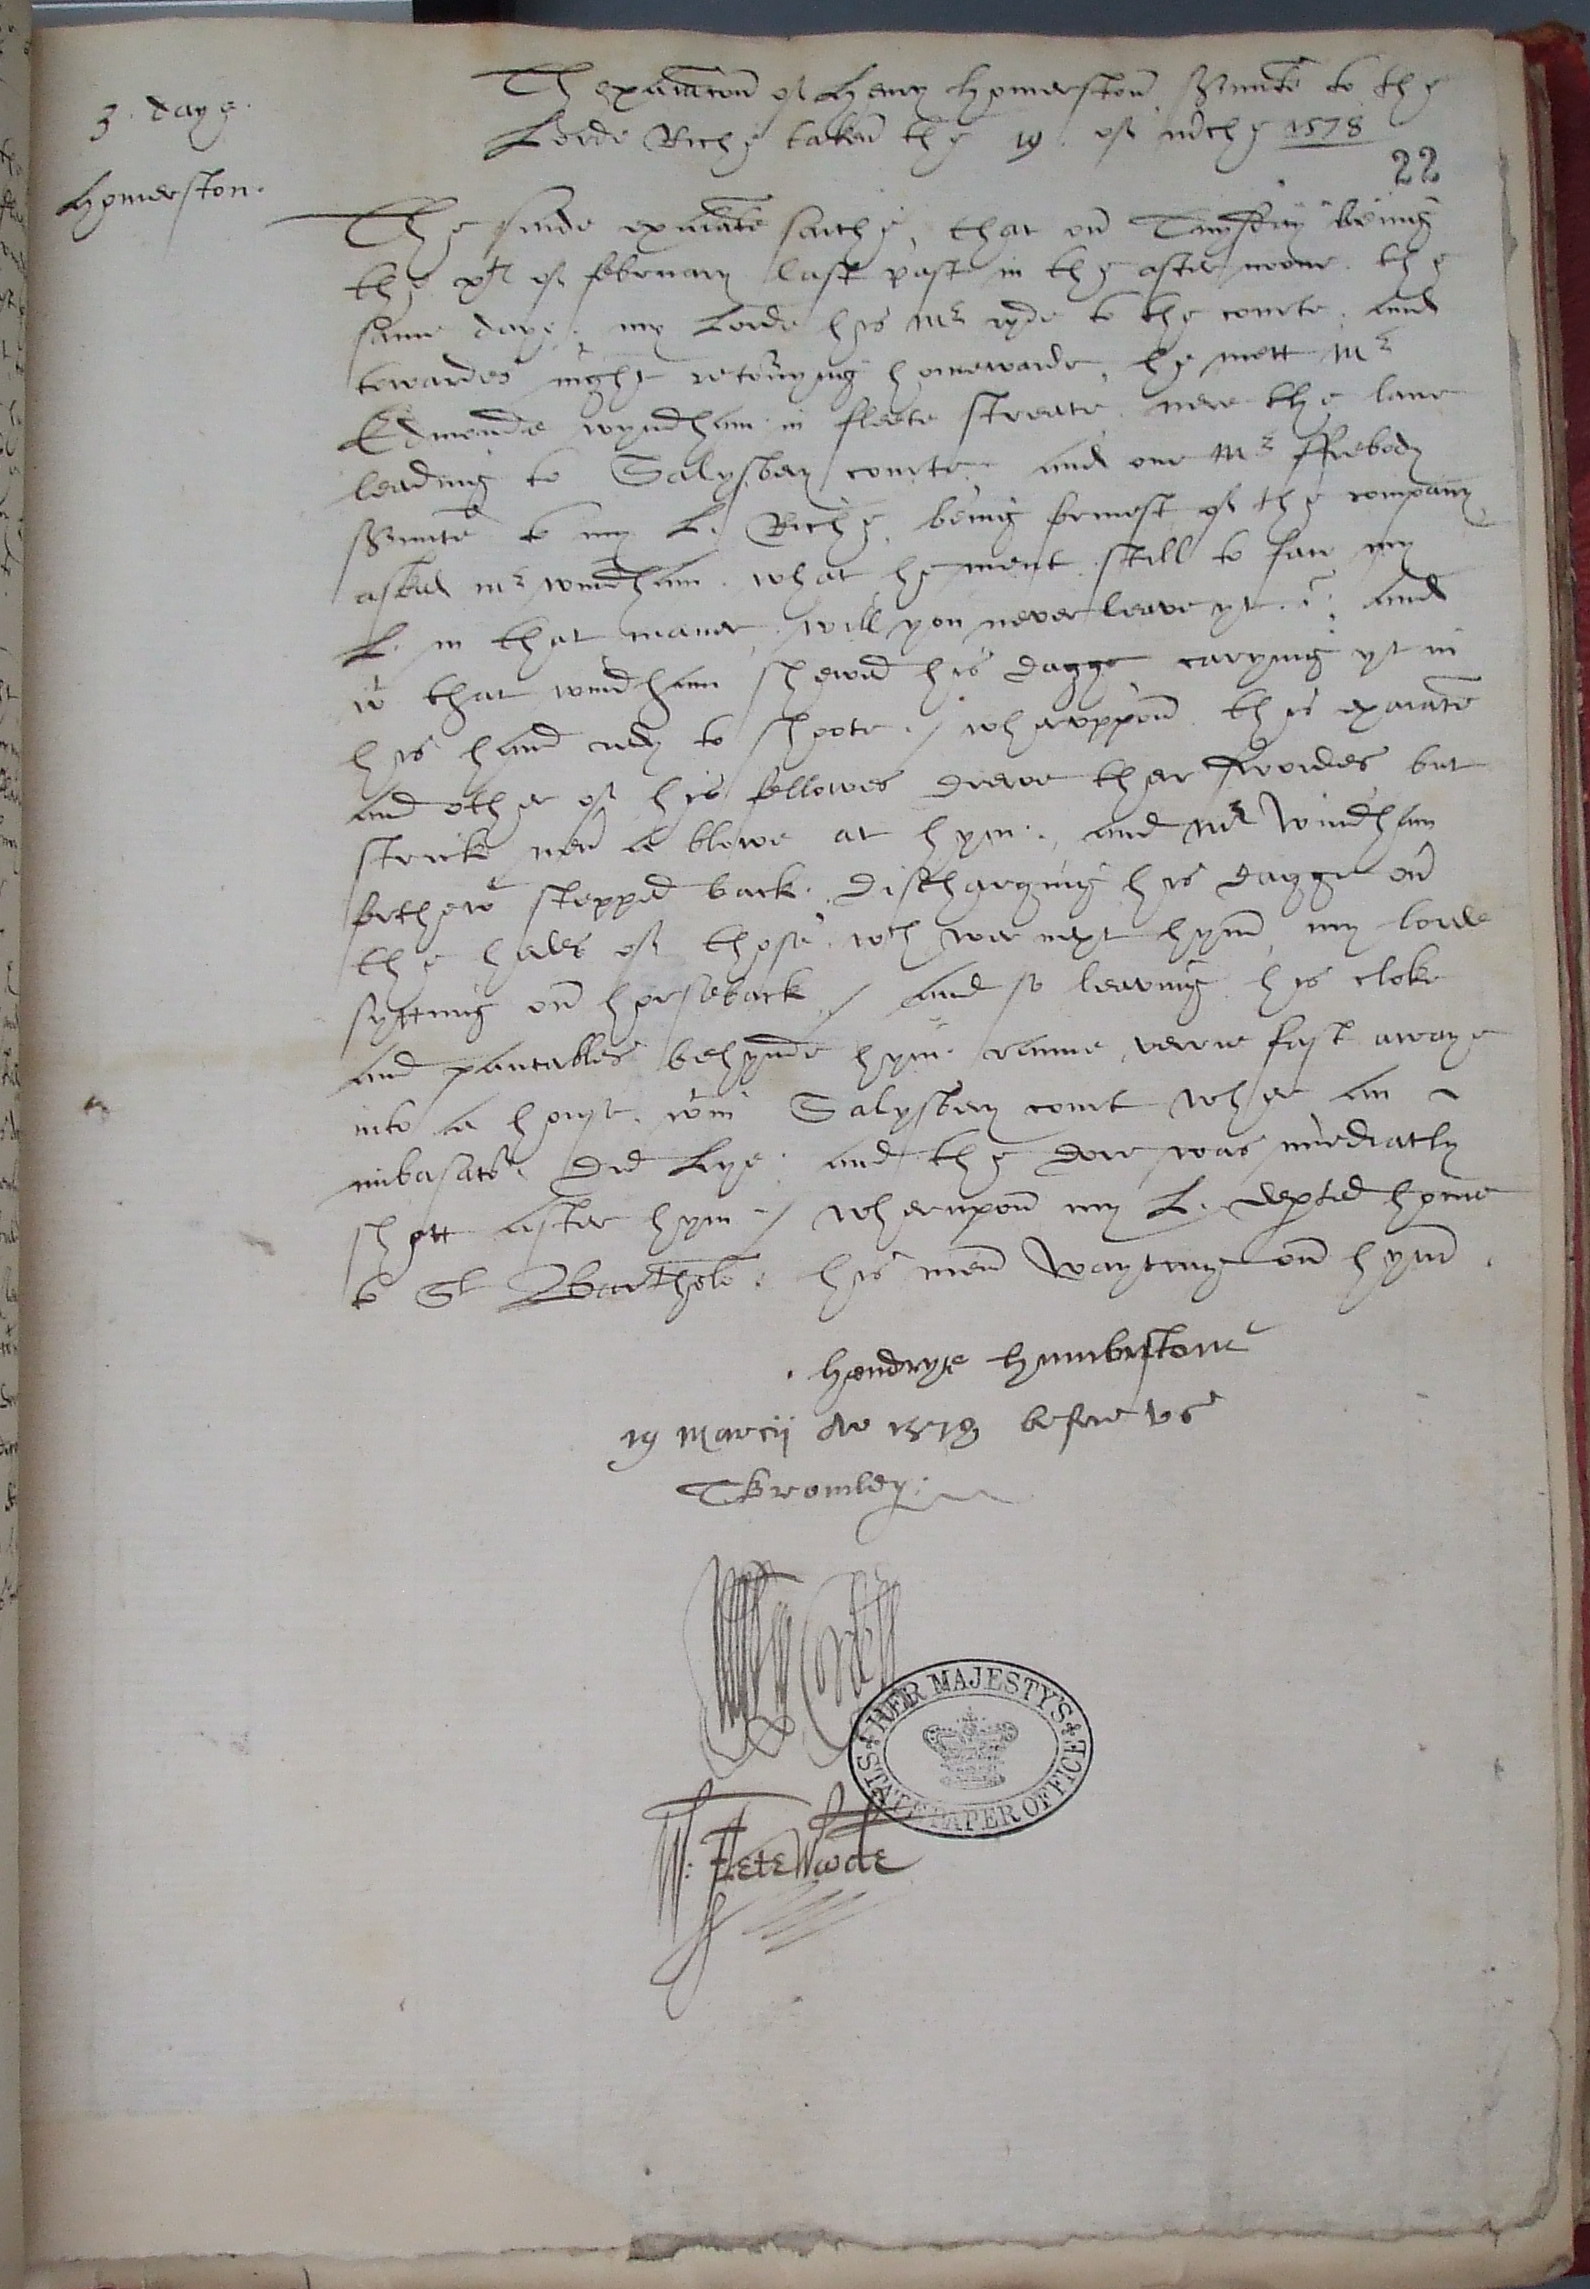 3. daye.
Homerston.
Th exaiacon of Henry Homerston S'vunte to the
Lorde Riche taken the 19. of m'che 1578
22
The saide exaiate saithe, that on Tuysday being
the xth of february last past in the after noone. the
same daye, my Lorde his Mr ryde to the courte. and
towardes night retournyng homewarde, he mett Mr
Edmonde wyndham in fleete streate nere the lane
leading to Salysbery courte. and one Mr ffrebody
S'vunte to my L. Riche, being formest of the company
asked Mr windham. what he ment still to face my
L. in that maner, will you never leave yt.? and
wt that windham shewed his dagge carying yt in
his hand redy to shoote. / wheruppon this exaiate
and other of his fellowes drewe ther swordes but
strake nevr a blowe at hym. and Mr Windham
forthewt stepped back. discharging his dagge on
the hedes of those wch were next hym, my lorde
syttyng on horseback / and so leaving his cloke
and pantables behynde hym ranne verrie fast awaye
into a house wtin Salysbery court wher an
imbasatr did Lye: and the dore was imediatly
shott after hym / wherupon my L. depted home
to St Bartholo: his men Wayting on hym.
Hendrye Humberstone
19 Marcij Ao 1578 before us
TBromley:
W. Fletewode
HER MAJESTY'S
STATE PAPER OFFICE